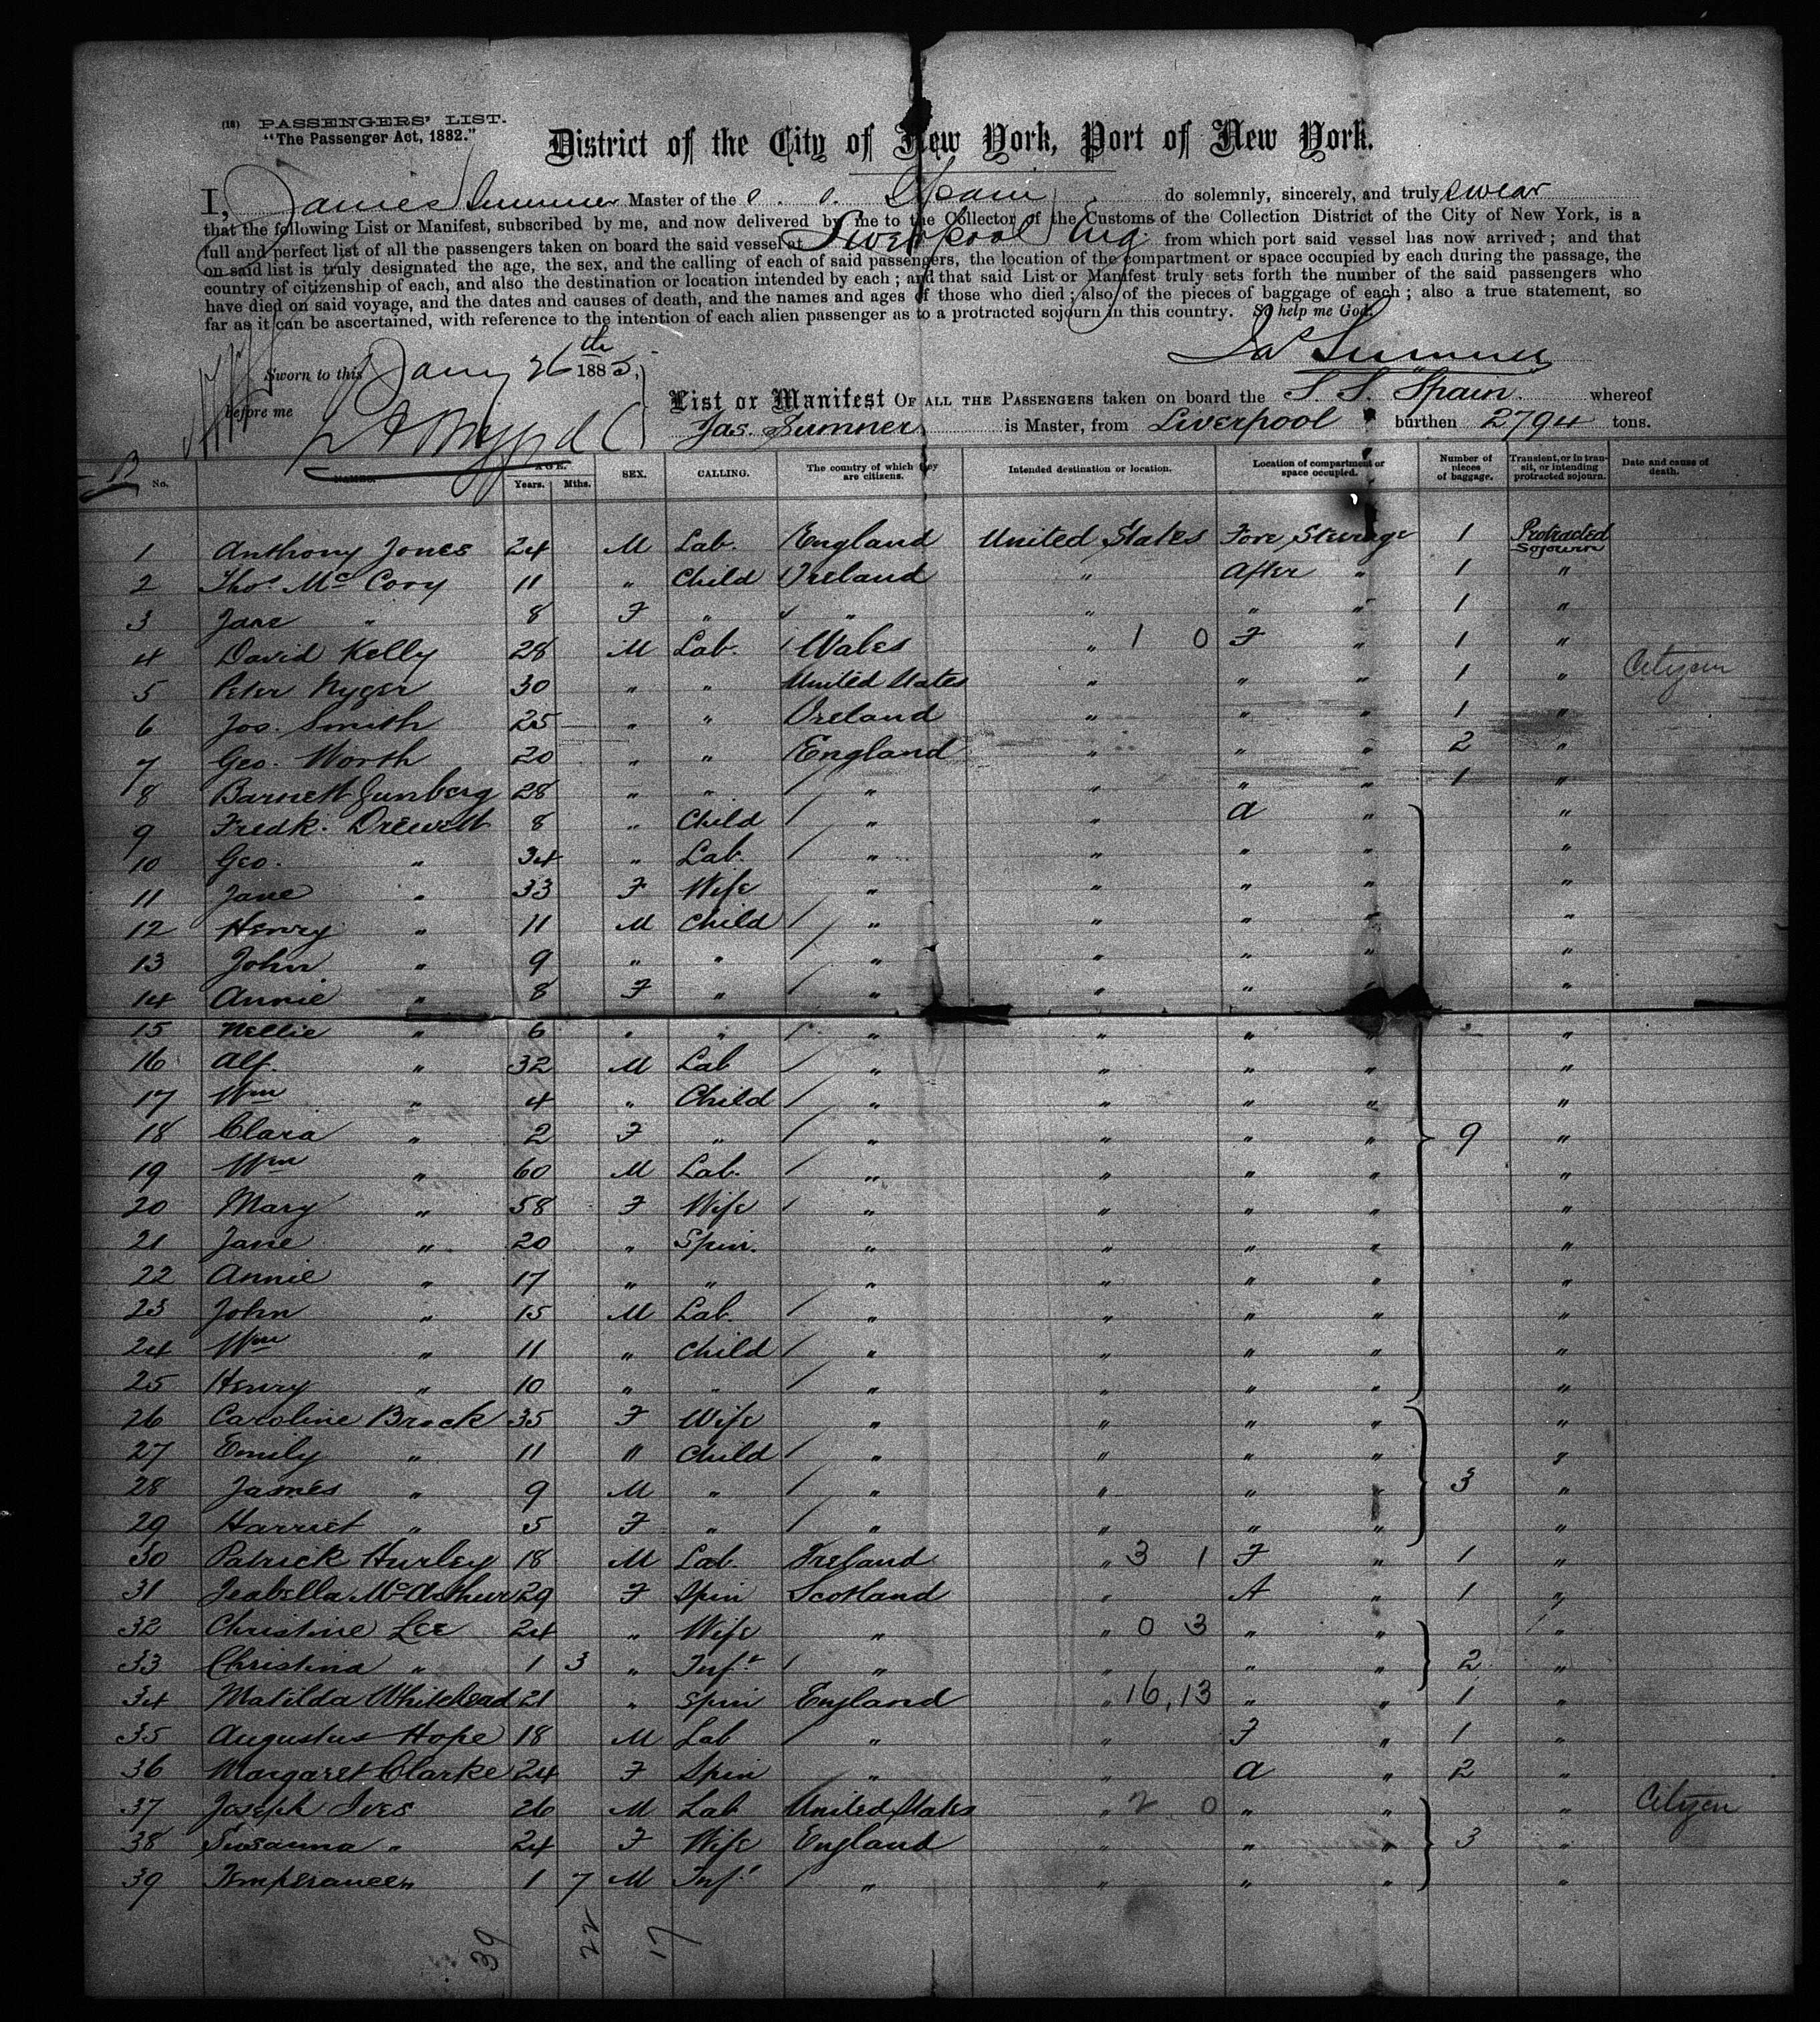 (18) PASSENGERS' LIST.
"The Passenger Act, 1882."
District of the City of New York, Port of New York.
I, James Sumner Master of the S. S. Spain do solemnly, sincerely, and truly swear
that the following List or Manifest, subscribed by me, and now delivered by me to the Collector of the Customs of the Collection District of the City of New York, is a
full and perfect list of all the passengers taken on board the said vessel at Liverpool Eng from which port said vessel has now arrived; and that
on said list is truly designated the age, the sex, and the calling of each of said passengers, the location of the compartment or space occupied by each during the passage, the
country of citizenship of each, and also the destination or location intended by each; and that said List or Manifest truly sets forth the number of the said passengers who
have died on said voyage, and the dates and causes of death, and the names and ages of those who died; also of the pieces of baggage of each; also a true statement, so
far as it can be ascertained, with reference to the intention of each alien passenger as to a protracted sojourn in this country. So help me God.
Jas Sumner
Sworn to this Jany 26th 1885,
before me
List or Manifest OF ALL THE PASSENGERS taken on board the S. S. Spain whereof
Jas. Sumner is Master, from Liverpool burthen 2794 tons.
No. NAMES. AGE. Years. Mths. SEX. CALLING. The country of which they are citizens. Intended destination or location. Location of compartment or space occupied. Number of pieces of baggage. Transient, or in transit, or intending protracted sojourn. Date and cause of death.
1 Anthony Jones 24 M Lab. England United States Fore Steerage 1 Protracted Sojourn
2 Thos. McCory 11 " Child Ireland " After " 1 "
3 Jane " 8 F " " " " " 1 "
4 David Kelly 28 M Lab. Wales " 1 0 F " 1 "
5 Peter Nyger 30 " " United States " " " 1 " Citizen
6 Jos. Smith 25 " " Ireland " " " 1 "
7 Geo. Worth 20 " " England " " " 2 "
8 Barnett Gunberg 28 " " " " " " 1 "
9 Fredk. Drewett 8 " Child " " a " "
10 Geo. " 34 " Lab. " " " " "
11 Jane " 33 F Wife " " " " "
12 Henry " 11 M Child " " " " "
13 John " 9 " " " " " " "
14 Annie " 8 F " " " " " "
15 Nellie " 6 " " " " " " "
16 Alf. " 32 M Lab " " " " "
17 Wm " 4 " Child " " " " "
18 Clara " 2 F " " " " " 9 "
19 Wm " 60 M Lab. " " " " "
20 Mary " 58 F Wife " " " " "
21 Jane " 20 " Spin. " " " " "
22 Annie " 17 " " " " " " "
23 John " 15 M Lab. " " " " "
24 Wm " 11 " Child " " " " "
25 Henry " 10 " " " " " " "
26 Caroline Brock 35 F Wife " " " " "
27 Emily " 11 " Child " " " " "
28 James " 9 M " " " " " 3 "
29 Harriet " 5 F " " " " " "
30 Patrick Hurley 18 M Lab. Ireland " 3 1 F " 1 "
31 Isabella McArthur 29 F Spin Scotland " A " 1 "
32 Christine Lee 24 " Wife " " 0 3 " " "
33 Christina " 1 3 " Inft " " " " 2 "
34 Matilda Whitehead 21 " Spin England " 16,13 " " 1 "
35 Augustus Hope 18 M Lab " " F " 1 "
36 Margaret Clarke 24 F Spin " " a " 2 "
37 Joseph Ives 26 M Lab United States " 2 0 " " " Citizen
38 Susanna " 24 F Wife England " " " 3 "
39 Temperance " 1 7 M Inft " " " " "
39 22 17